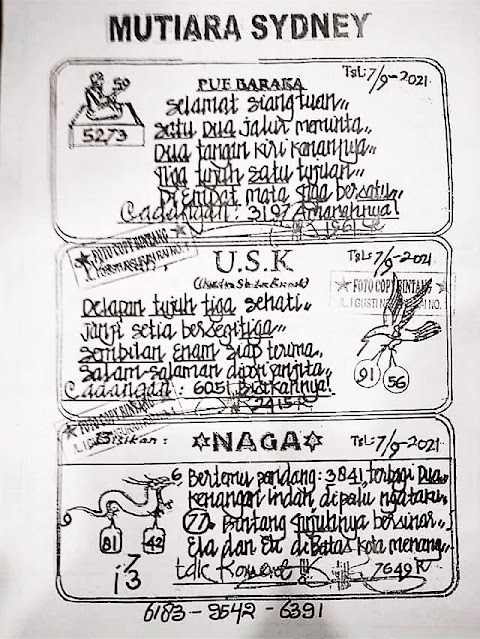 MUTIARA SYDNEY
PUF BARAKA
TgL: 7/9-2021
59
5273
Selamat siang tuan,,
Satu Dua jalur meminta,,
Dua tangan kiri kanannya,,
Tiga tujuh satu tujuan,,
Di Empat mata tiga bersatu,,
Cadangan: 3197 Amanahnya!
FOTO COPY BINTANG
U.S.K
TgL: 7/9-2021
FOTO COPY BINTANG
JL. I GUSTI NGURAH RAI NO.
Delapan tujuh tiga sehati,,
Janji setia bersegitiga,,
Sembilan Enam siap terima,,
Salam-salaman
Cadangan: 6051 Bisikannya!
2415 R
91
56
FOTO COPY BINTANG
Bisikan: ☆NAGA☆ TgL: 7/9-2021
6 Bertemu pandang: 3841, terbagi Dua,,
kenangan indah, dipalu
77. Bintang tujuhnya bersinar,,
Ela dan Eti di Batas kota menang,,
tdk Komend
7649 R
81
42
7
3
i3
6183 - 9542 - 6391